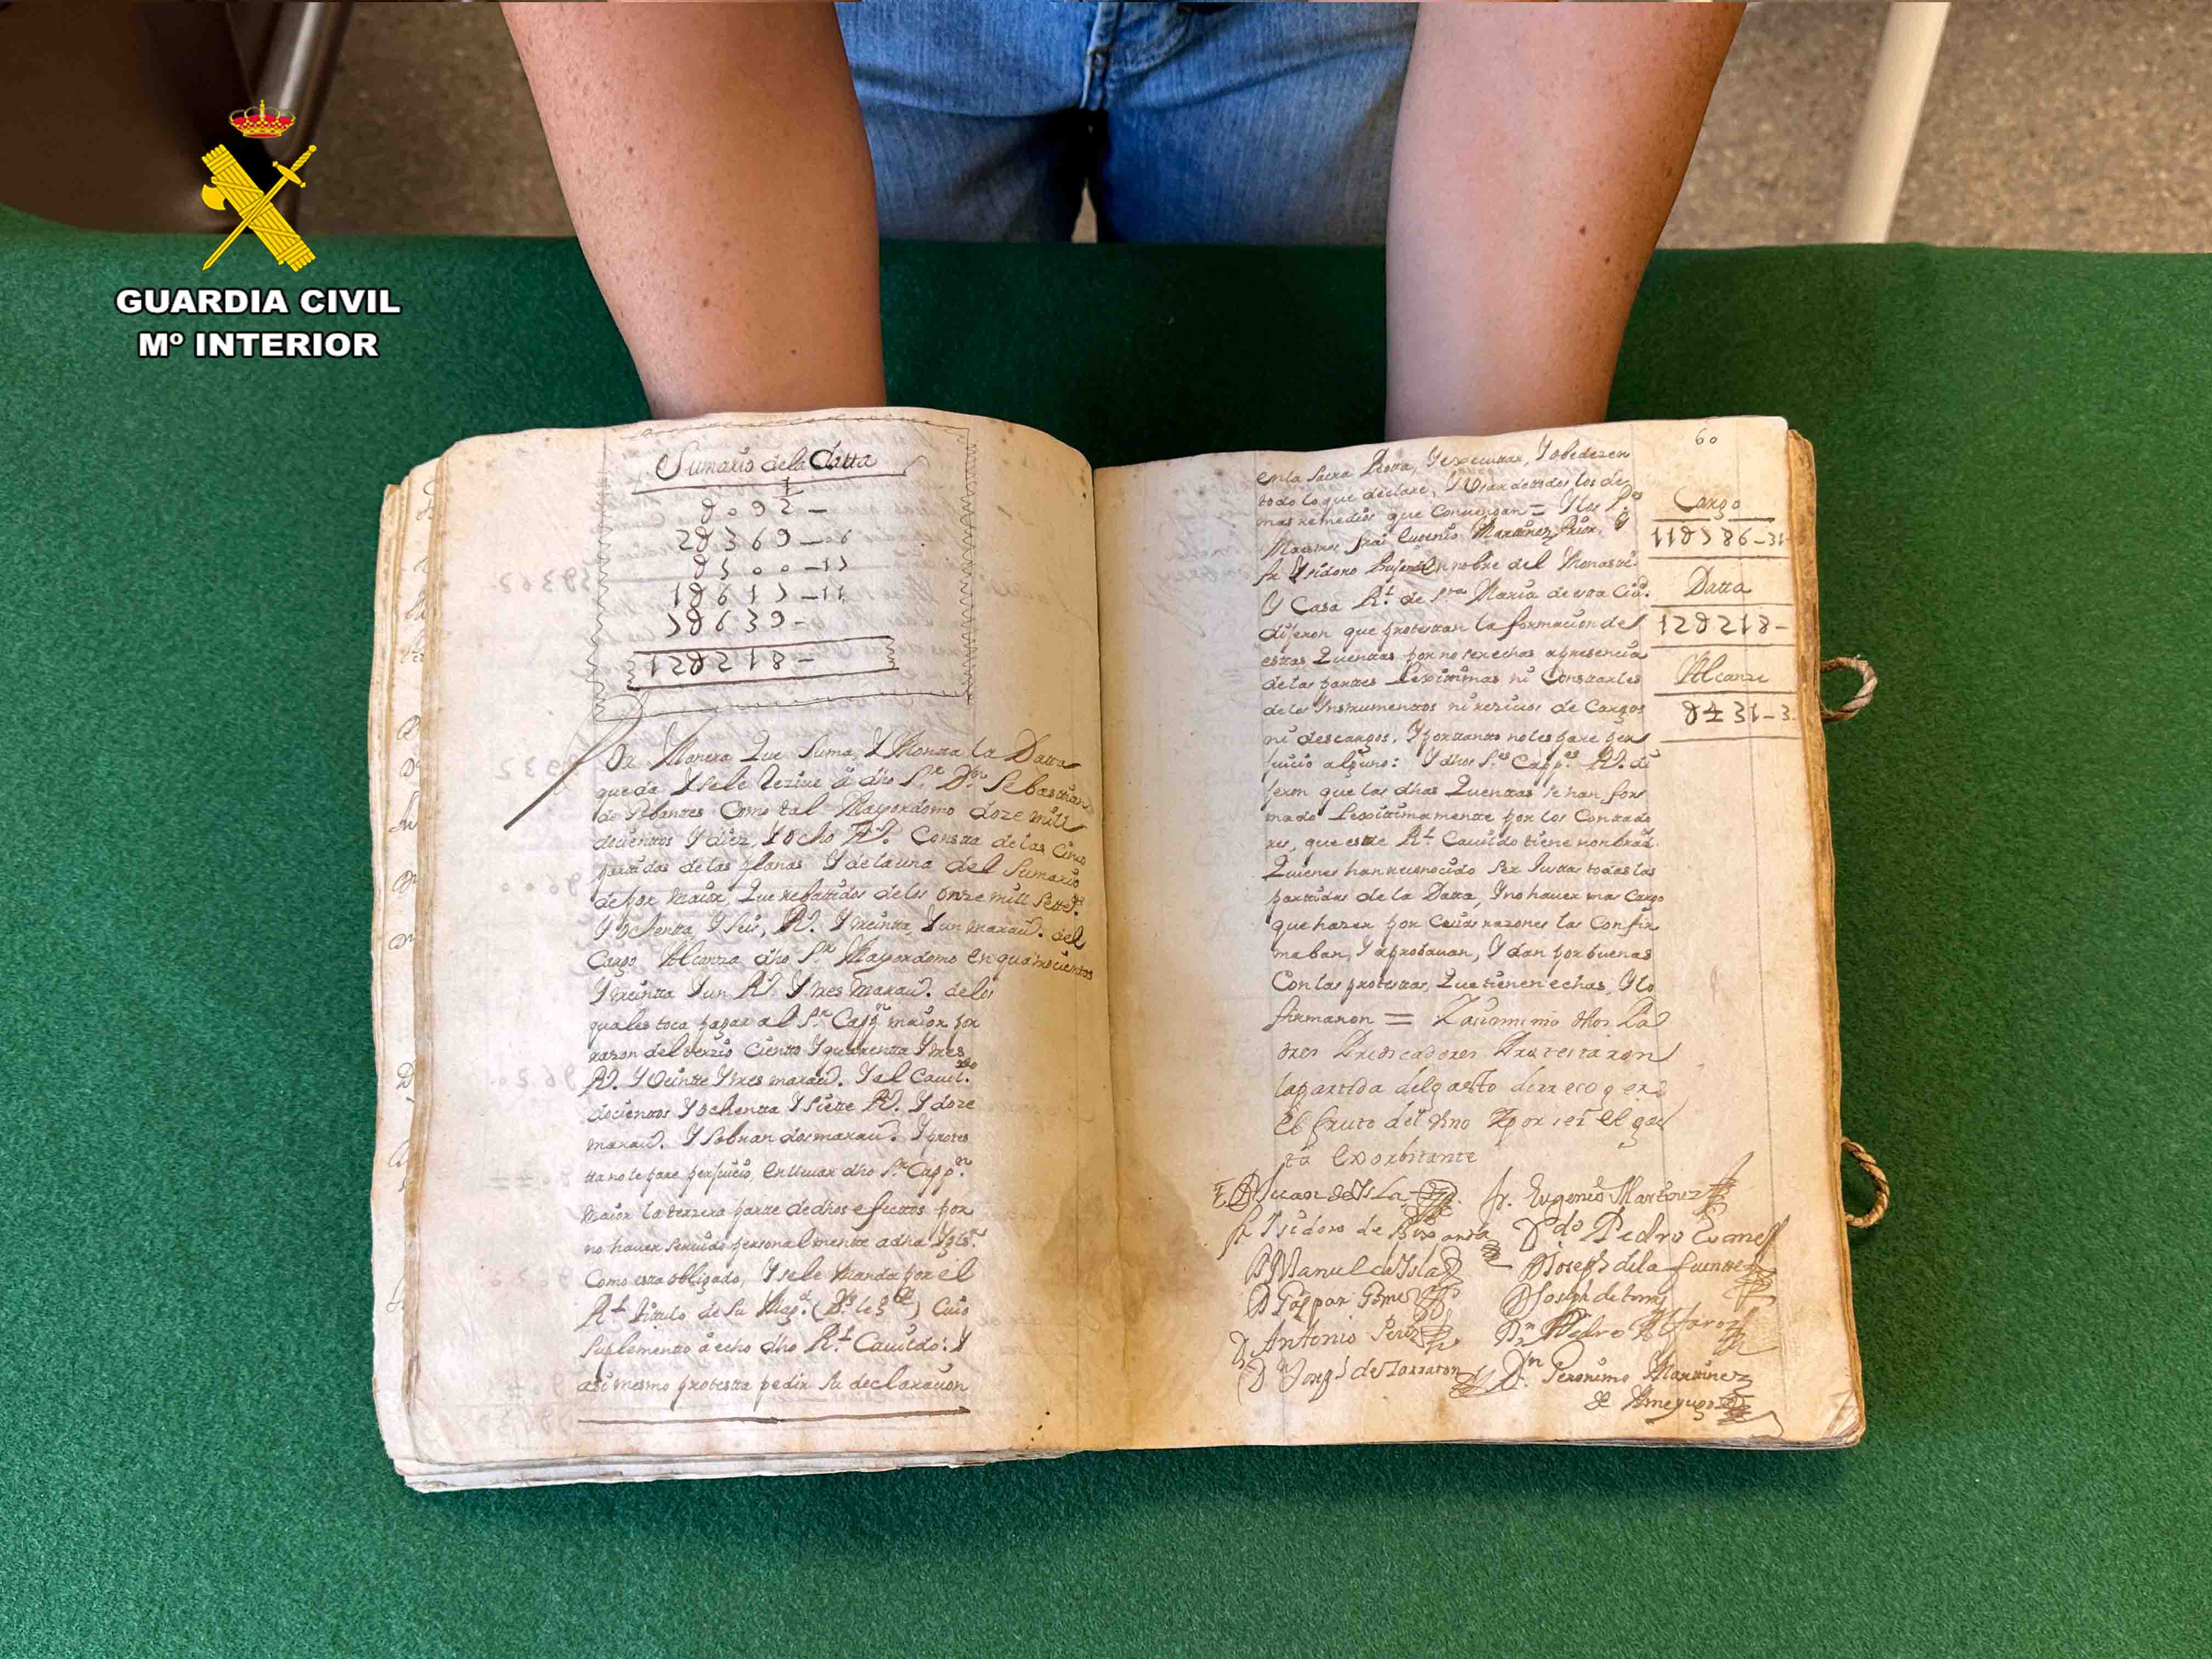 GUARDIA CIVIL
Mº INTERIOR
Sumario dela Datta
De Manera Que Suma, Y Monta la Datta
queda Y sele rezive â dho Sr. Dn. Sebastian
de Pobantes Como tal Mayordomo doze mill
docientos Y diez, Y ocho Rs. Consta de las Cinco
partidas de las planas Y de la una del Sumario
de por maior, Que rebattidos delos onze mill Settezs.
Y ochenta, Y seis, Rs. Y treinta, Y un maravs. del
Cargo Alcanza dho Sr. Mayordomo En quatrocientos
Y treinta Y un Rs. Y tres maravs. delos
quales toca pagar al Sr. Cappn. maior por
razon del terzio Ciento Y quarenta Y tres
Rs. Y Veinte Y tres maravs. Y al Cavildo
docientos Y ochenta Y siete Rs. Y doze
maravs. Y Sobran dos maravs. Y protes
ta no le pare perjuicio, En llevar dho Sr. Cappn.
maior la terzera parte de dhos efectos por
no haver servido personalmente a dha Ygla.
Como esta obligado, Y sele manda por el
Rl. titulo de Su Magd. Cuio
Suplemento â echo dho Rl. Cavildo: Y
asi mesmo protesta pedir Su declarazion
60
en la Sacra Rotta, Y executar, Y obedezer
todo lo que declare, Y Usar de todos los de
mas remedios que Convengan = Y los Ps.
Maestros frai Eugenio Martinez Prior, Y
fr Ysidoro en nobre del Monastro.
Y Casa Rl. de Sta Maria de esta Ciud.
dijeron que protestan la formazion de
estas Quentas por no ser echas a presencia
de las partes Lexitimas ni Constarles
de los Ynstrumentos ni rezivos de Cargos
ni descargos, Y por tanto no les pare per
juicio alguno: Y dhos Sres Cappes Rs. di
jeron que las dhas Quentas se han for
mado Lexitimamente por los Contado
res, que este Rl. Cavildo tiene nonbrads.
Quienes han reconocido ser Justas todas las
partidas de la Datta, Y no haver mas Cargo
que hazer por Cuias razones las Confir
maban, Y aprobavan, Y dan por buenas
Con las protestas, Que tienen echas, Y lo
firmaron = Y asimismo dhos Pa
dres Predicadores Protestaron
la partida del gasto de rrecoger
El fruto del vino por ser el gas
to Exorbitante
Cargo
11U786-31
Datta
12U218-
Alcanze
U431-3
Juan de Isla
fr. Eugenio Martinez
fr Isidoro de
Pedro
D Manuel de Isla
D Joseph de la fuente
D Gaspar Gomez
D Joseph de
D Antonio Perez
Dn Pedro Alfaro
D Joseph de
Dn. Geronimo Martinez
de Ameyugo